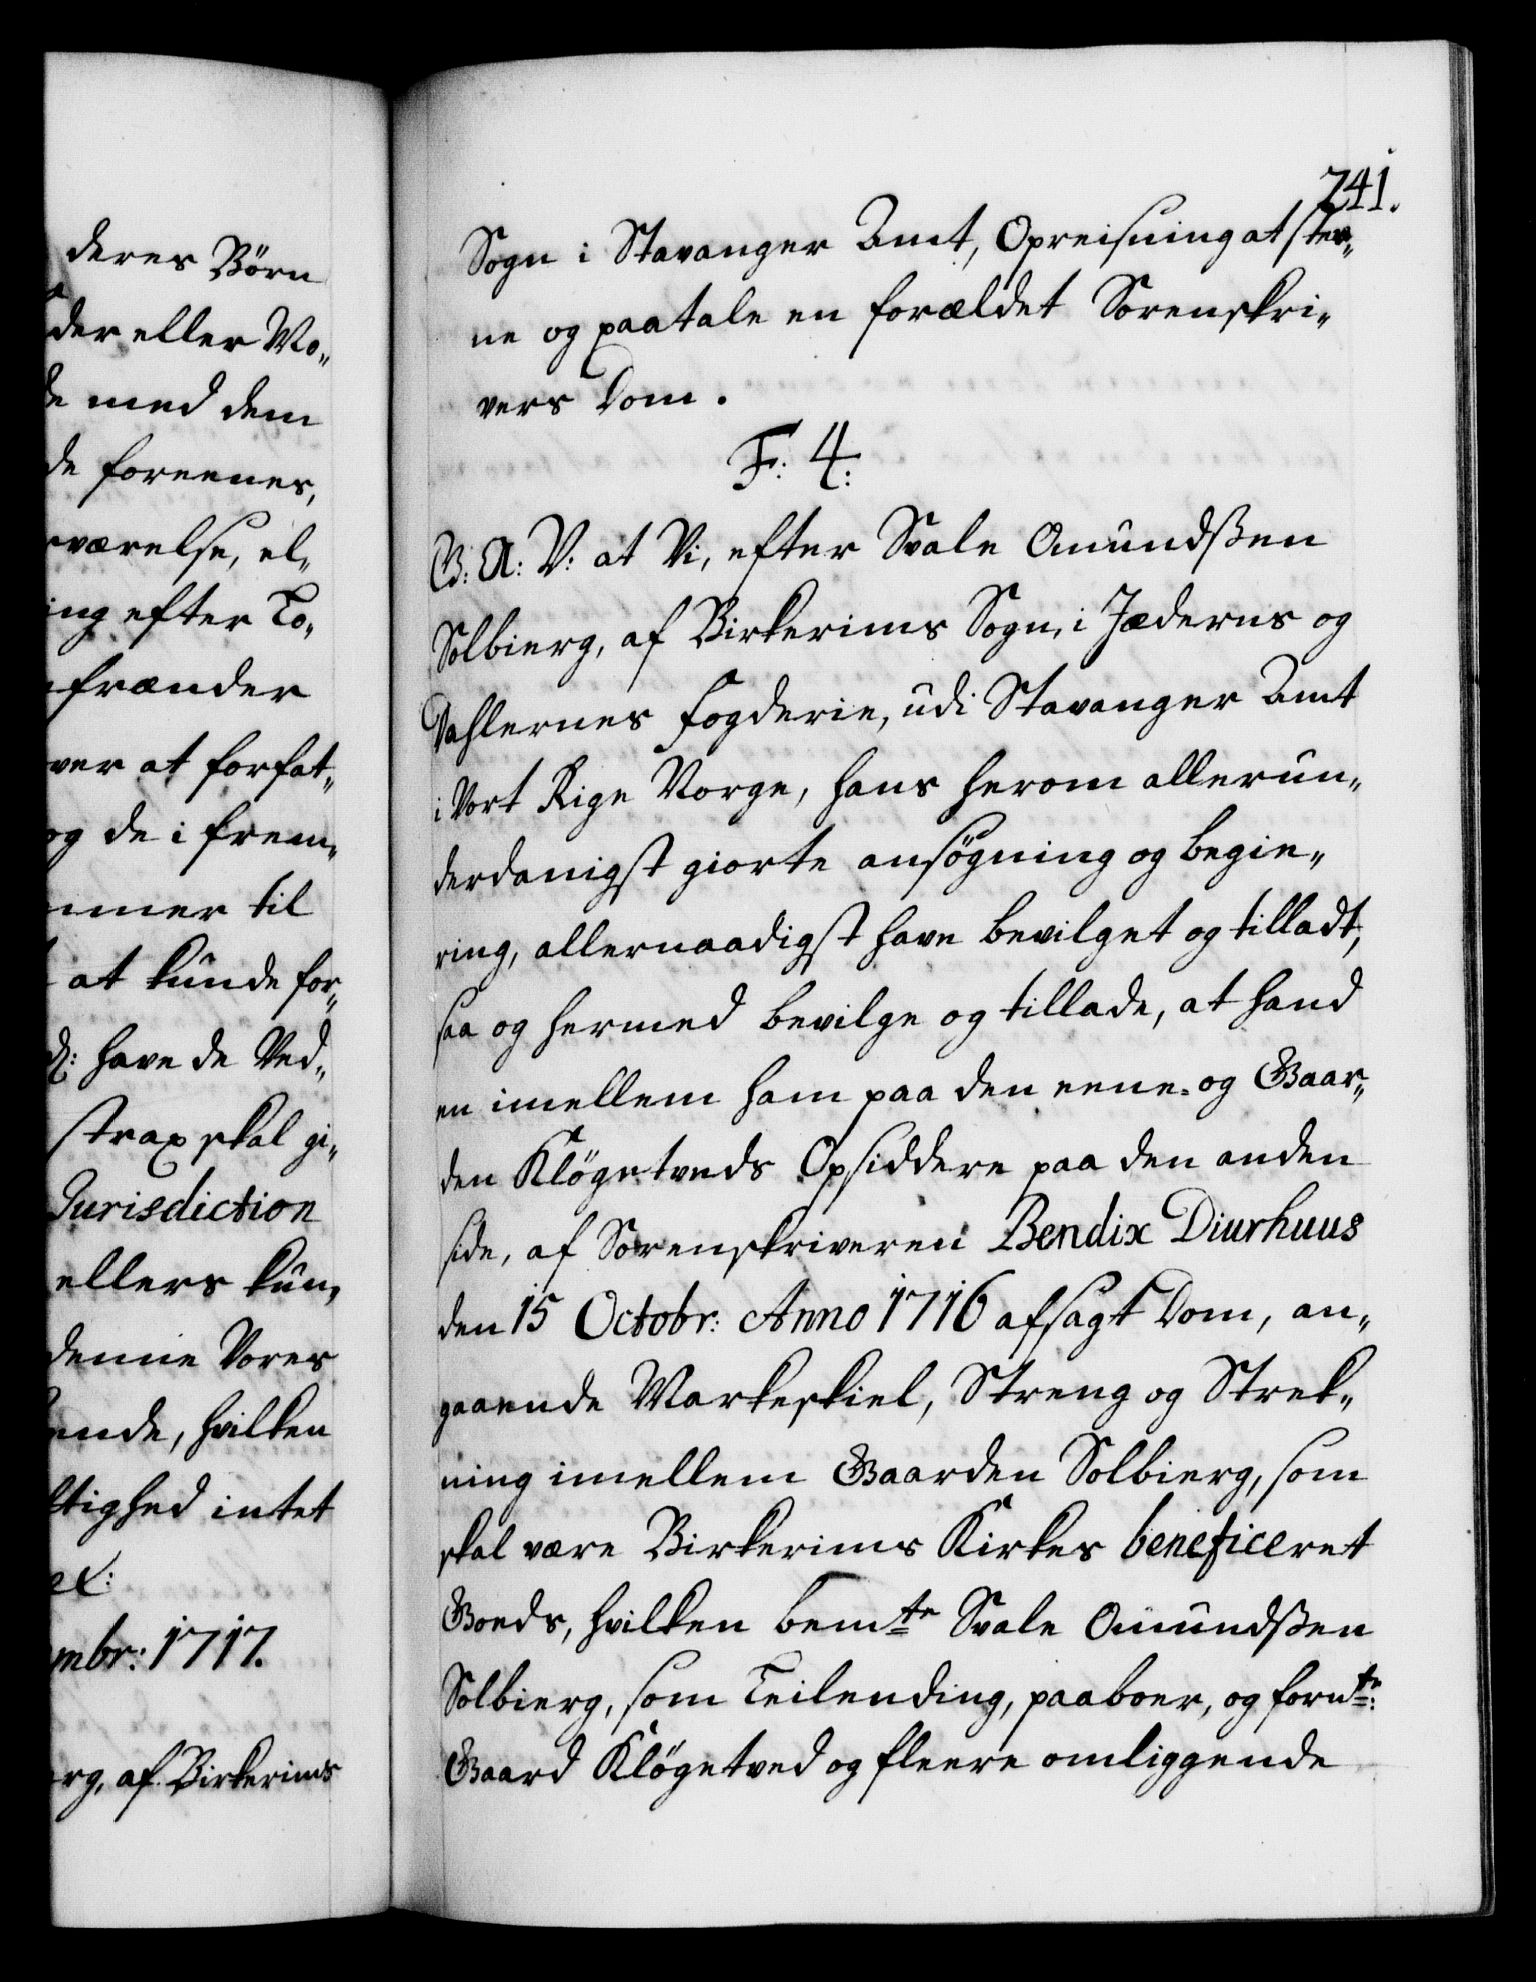 deres Börn
der eller Mo„
de med dem
de foreenes,
værelse, el„
ing efter To„
frænder
ver at forfat„
og de i frem„
mmer til
at kunde for„
have de Ved„
strax skal gi„
Jurisdiction
ellers kun„
denne Vores
ende, hvilken
tighed intet
mbr: 1717.
rg, af Birkerims
241.
Sogn i Stavanger Amt, Opreisning at stev„
ne og paatale en forældet Sorenskri„
vers Dom.
F: 4:
G: A: V: at Vi, efter Svale Omundßen
Solbierg, af Birkerims Sogn, i Jæderens og
Dahlernes Fogderie, udi Stavanger Amt
i Vort Rige Norge, hans herom allerun„
derdanigst giorte ansøgning og begie„
ring, allernaadigst have bevilget og tilladt,
saa og hermed bevilge og tillade, at hand
en imellem ham paa den eene- og Gaar„
den Kløgetveds Opsiddere paa den anden
side, af Sorenskriveren Bendix Diurhuus
den 15 Octobr: Anno 1716 afsagt Dom, an„
gaaende Markeskiel, Streng og Strek„
ning imellem Gaarden Solbierg, som
skal være Birkerims Kirkes beneficeret
Goeds, hvilken bemte Svale Omundßen
Solbierg, som Leilending, paaboer, og fornte:
Gaard Kløgetved og fleere omliggende